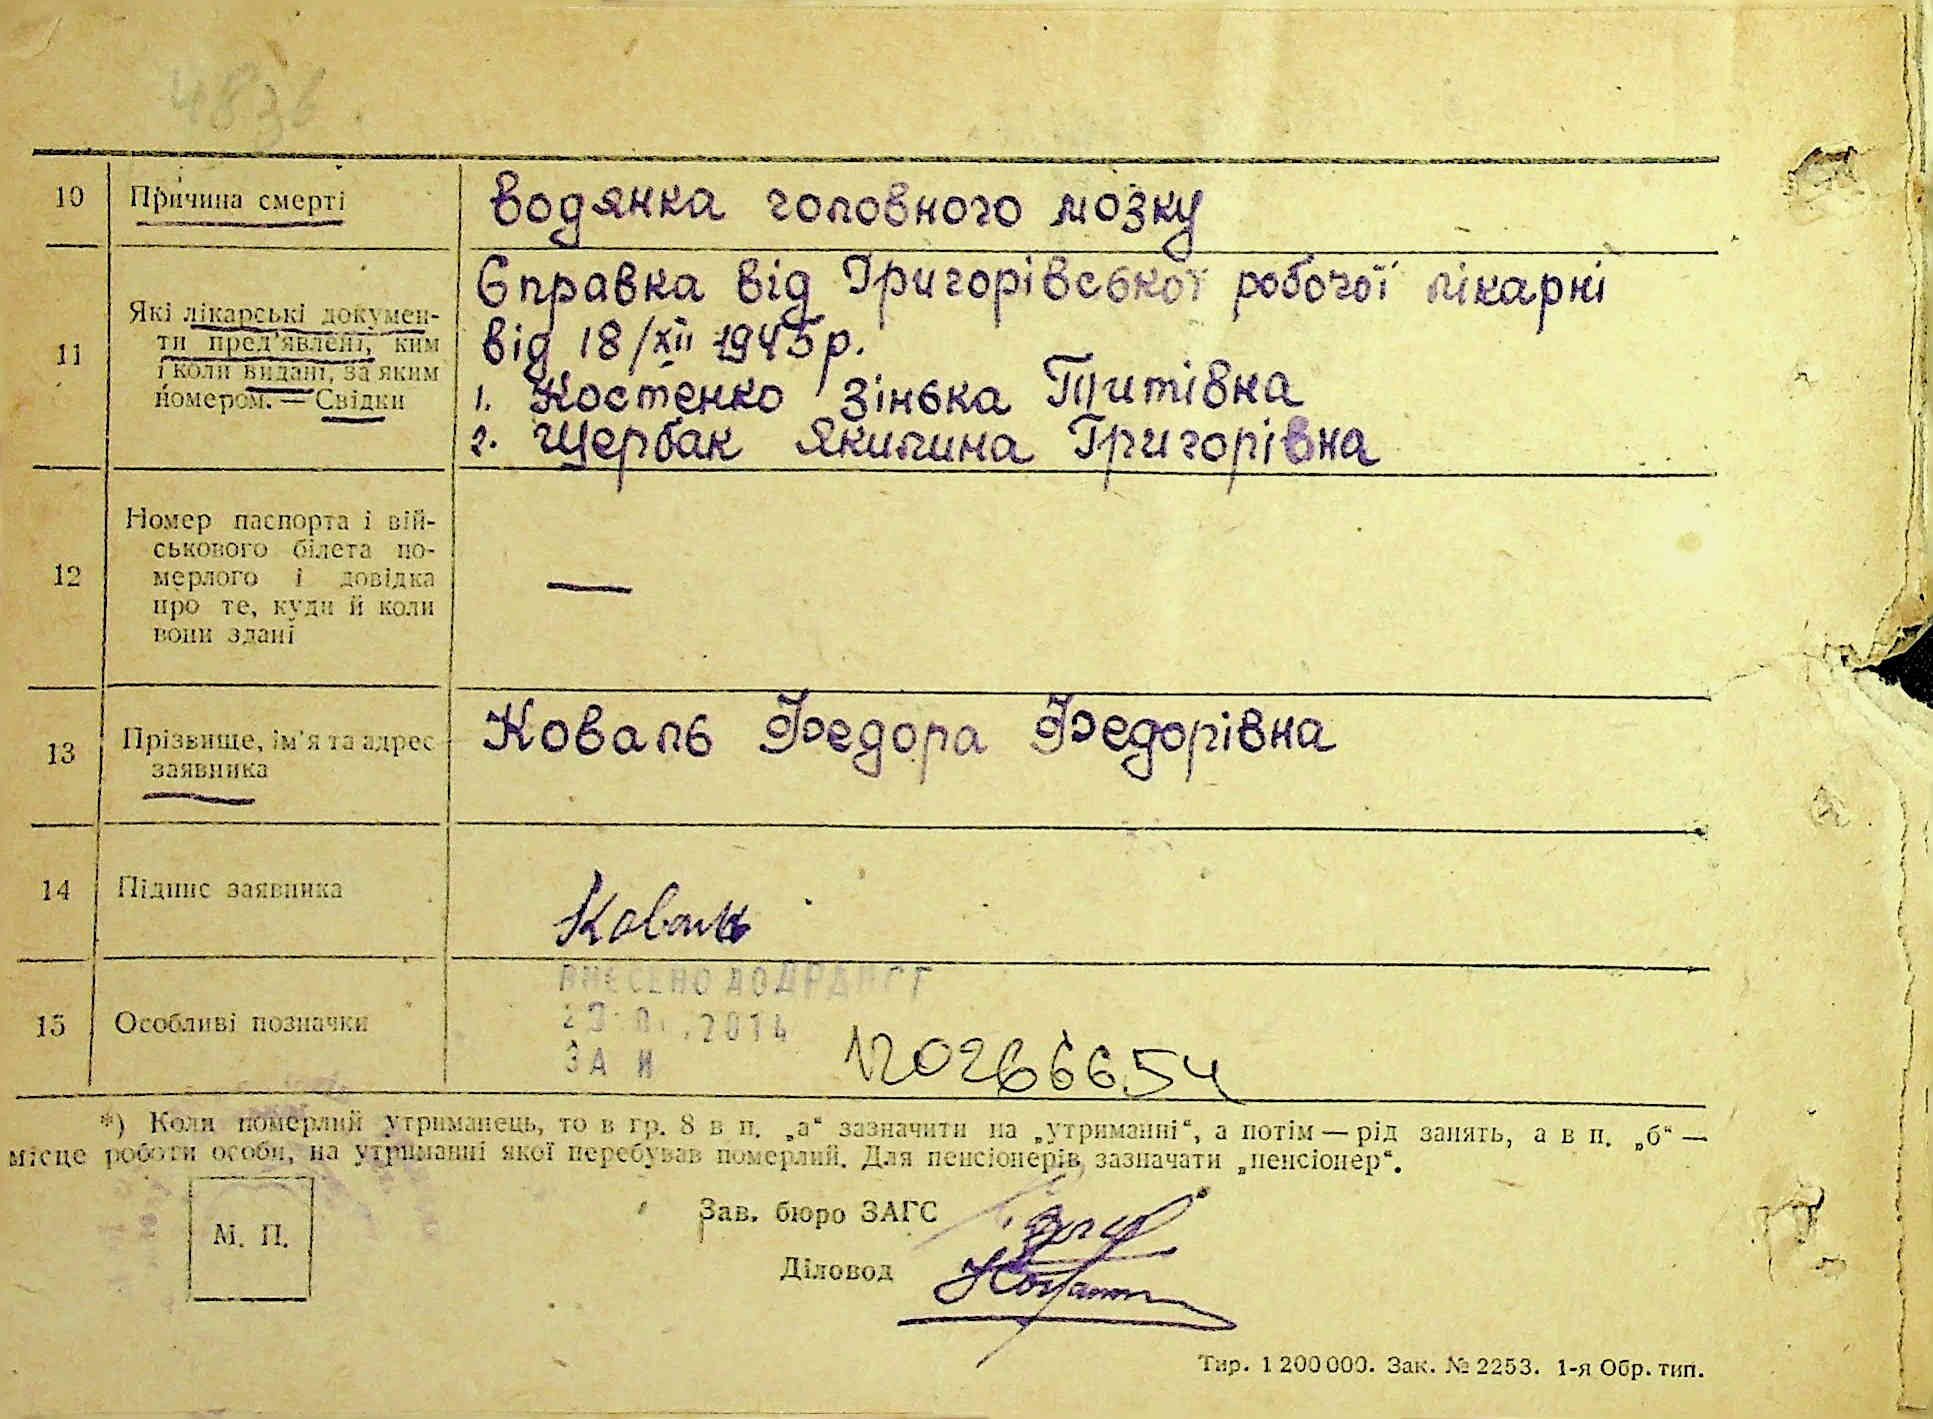 4836
10 Причина смерті водянка головного мозку
11 Які лікарські докумен-
ти пред'явлені, ким
і коли видані, за яким
номером. — Свідки
Справка від Григорівської робочої лікарні
від 18/XII 1945р.
1. Костенко Зінька Титівна
2. Щербак Якилина Григорівна
12 Номер паспорта і вій-
ськового білета по-
мерлого і довідка
про те, куди й коли
вони здані
—
13 Прізвище, ім'я та адрес
заявника
Коваль Федора Федорівна
14 Підпис заявника Коваль
15 Особливі позначки
ВНЕСЕНО ДО ДРАЦСГ
2014
ЗА И
120266654
*) Коли померлий утриманець, то в гр. 8 в п. „а“ зазначити на „утриманні“, а потім — рід занять, а в п. „б“ —
місце роботи особи, на утриманні якої перебував померлий. Для пенсіонерів зазначати „пенсіонер“.
М. П.
Зав. бюро ЗАГС
Діловод
Тир. 1 200 000. Зак. № 2253. 1-я Обр. тип.